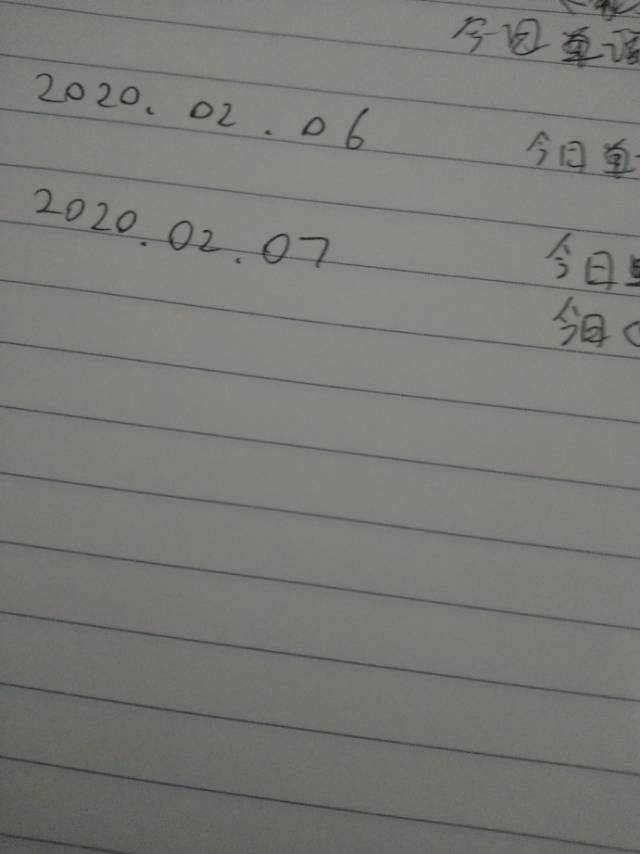 今日单词
2020.02.06 今日单
2020.02.07 今日
今日